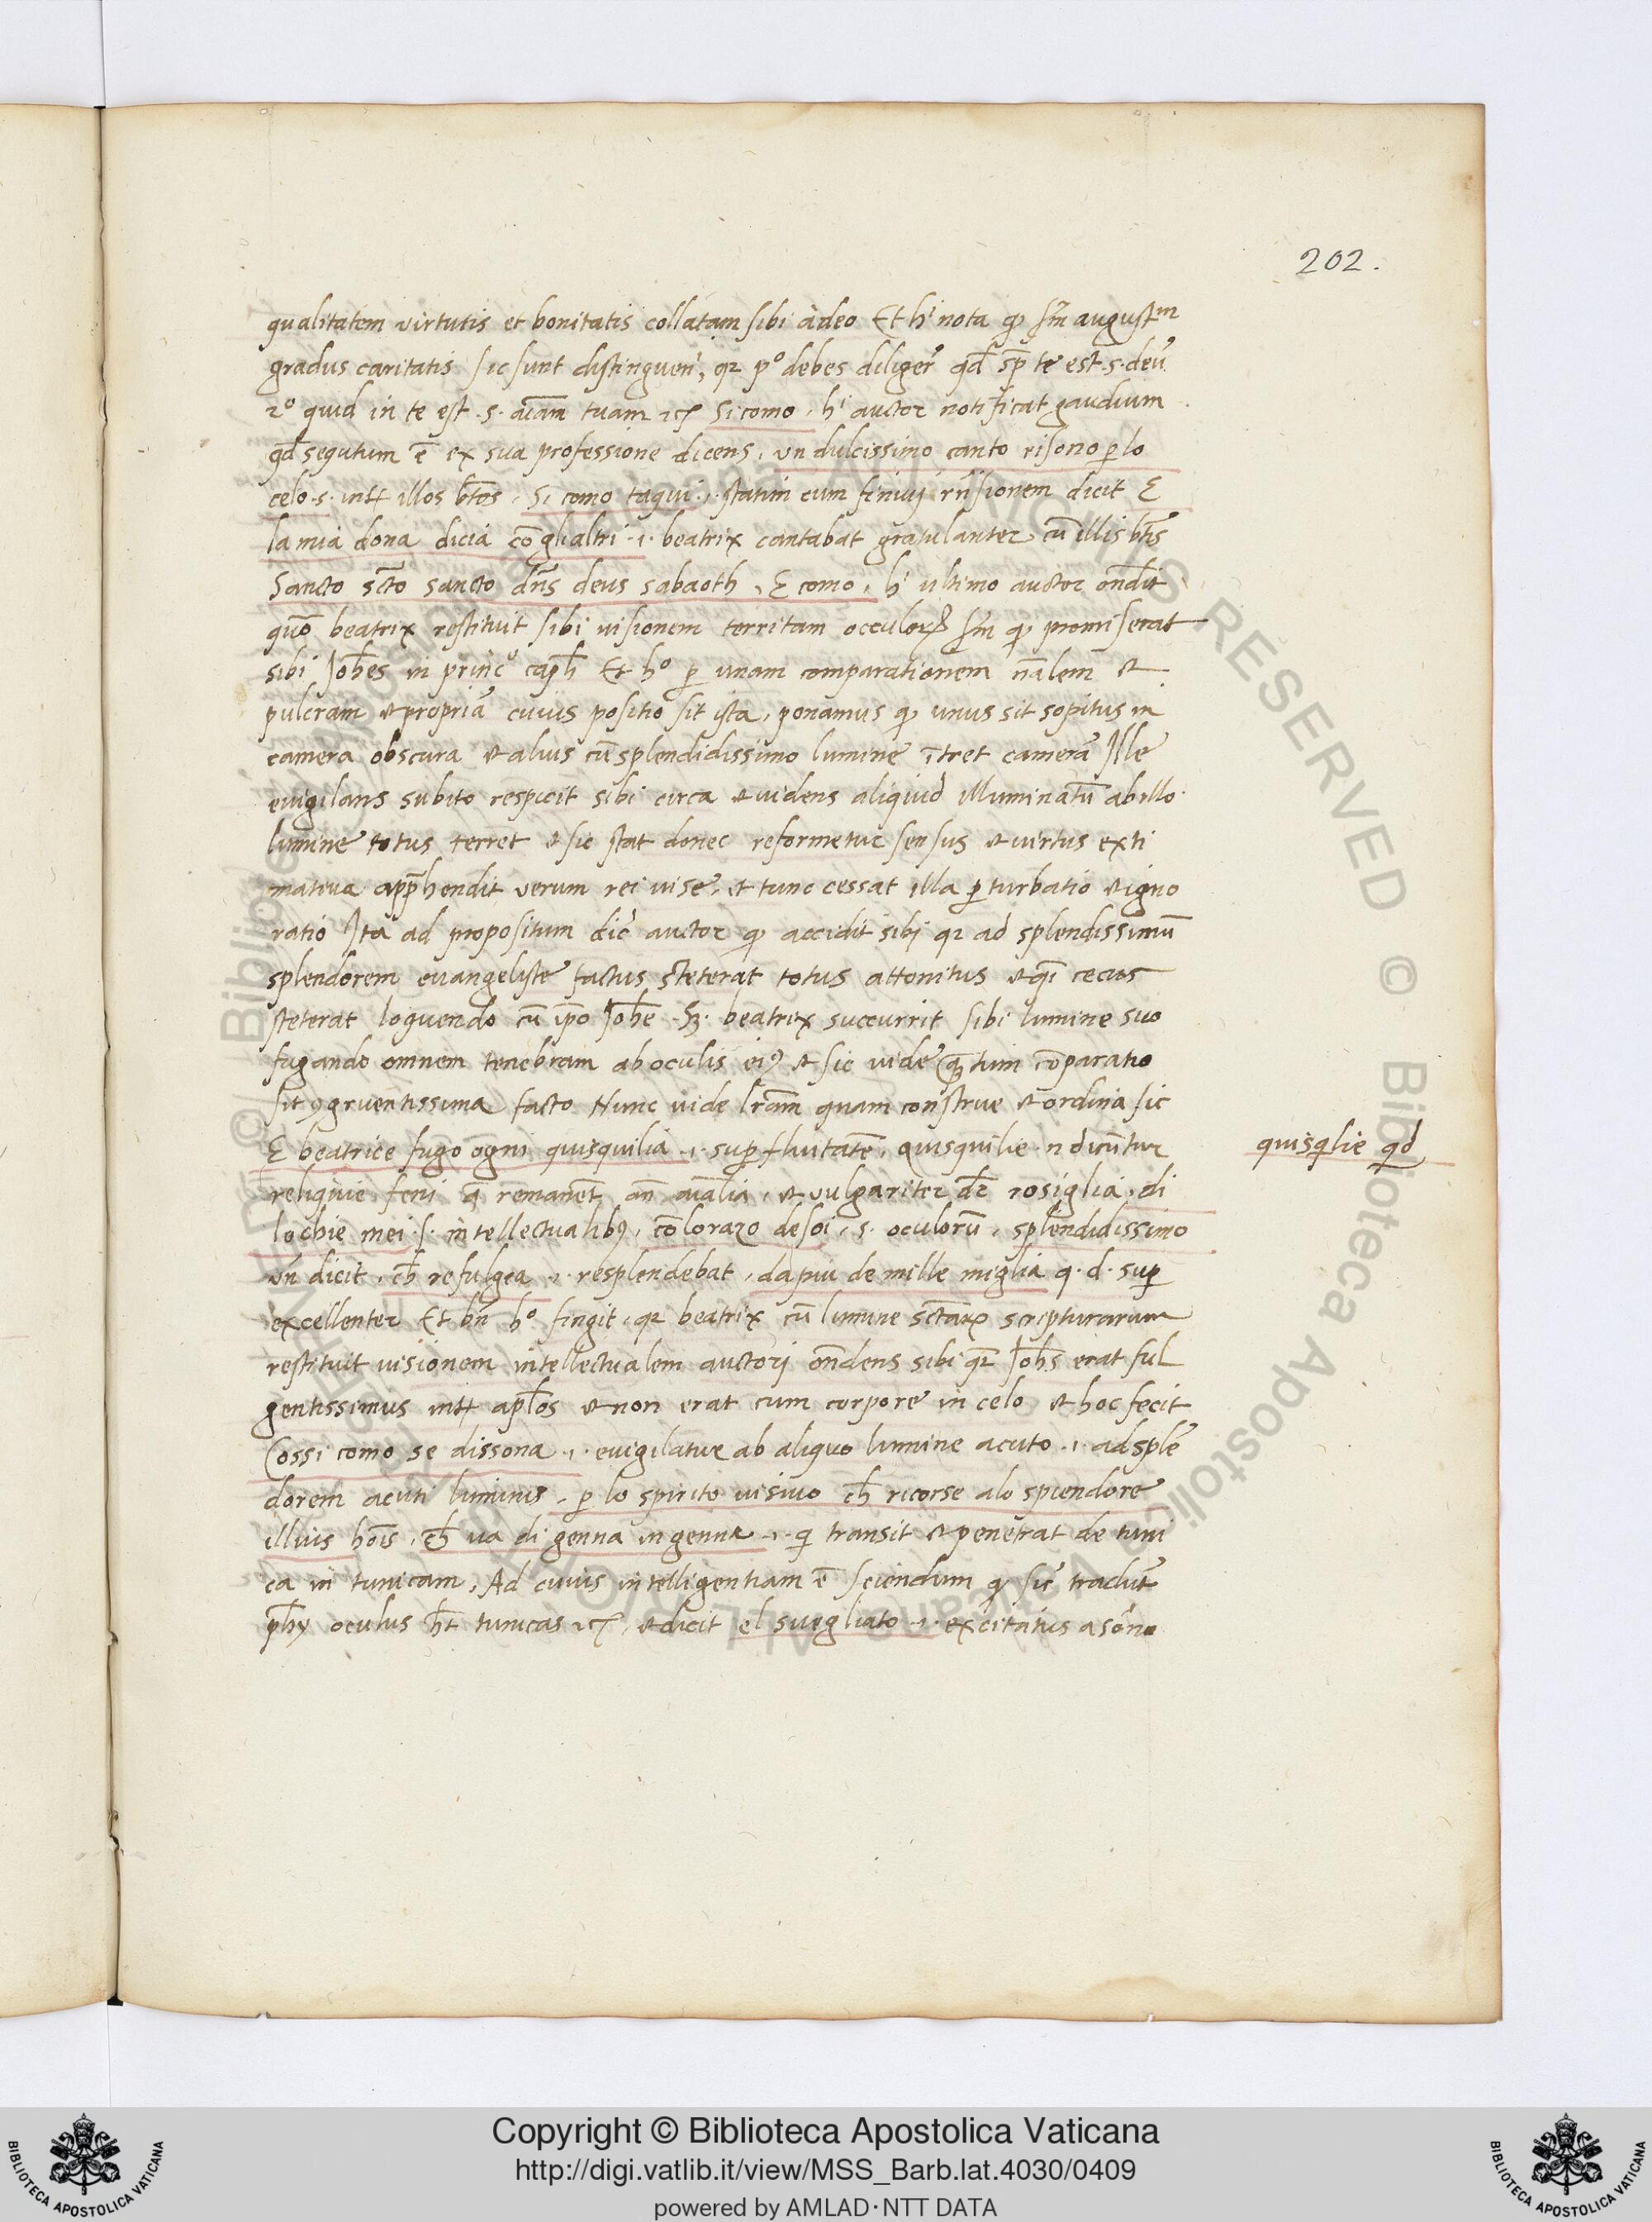 202.
qualitatem virtutis et bonitatis collatam sibi adeo Et hi nota qd scdm augustm
gradus caritatis sic sunt distinguen̄, qr po debes diliger̄ qd̄ sp̄ te est .s. deū
2o quid in te est .s. aīam tuam etc Si como, hi auctor notificat gaudium
qd̄ segutum ē ex sua professione dicens, un dulcissimo canto risono p lo
celo .s. int illos btōs, Si como taqui .i. statim cum finiuj rn̄sionem dicit E
la mia dona dicia cō gli altri .i. beatrix cantabat gratulanter cū illis btīs
Sancto scto sancto dn̄s deus sabaoth, E como, hi ultimo auctor ond̄it
quō beatrix restituit sibi uisionem territam occulor scdm qd promiserat
sibi Joh̄es in princo capli Et ho p unam comparationem nālem et
pulcram et propriā cuius positio sit ista, ponamus qd unus sit sopitus in
camera obscura et alius cū splendidissimo lumine ītret camerā Jlle
euigilans subito respicit sibi circa et uidens aliquid illuminatū ab illo
lumine totus terret et sic stat donec reformetur sensus et uirtus exti
matiua appp̄hendit verum rei uise, et tunc cessat illa pturbatio et igno
ratio Jta ad propositum dic̄ auctor qd accidit sibj qr ad splendissimū
splendorem euangeliste factus steterat totus attonitus et qi cecus
steterat loquendo cū ip̄o Joh̄e .Sz. beatrix succurrit sibi lumine suo
fugando omnem tenebram ab oculis ei9 et sic uide qtum cōparatio
sit 9gruentissima facto Nunc uide lrām quam construe et ordina sic
E beatrice fugo ogni quisquilia .i. supfluitatē, Quisquilie n dicūntur
reliquie feni q remanēt an̄ aīalia, et vulgariter dr̄ rosiglia, di
lochie mei .s. intellectualib9, cō lo razo de soi, s. oculorū, splendidissimo
un̄ dicit, ch̄ refulgea .i. resplendebat, da piu de mille miglia q. d. sup
excellenter Et bn̄ ho fingit, qr beatrix cū lumine sctār scripturarum
restituit visionem intellectualem auctorj ondens sibi qr Joh̄s erat ful
gentissimus int ap̄los et non erat cum corpore in celo et hoc fecit
Cossi como se dissona .i. euigilatur ab aliquo lumine acuto .i. ad splē
dorem acuti luminis, p lo spirito uisiuo ch̄ ricorse alo spiendore
illius hōis, ch̄ ua di genna in genna .i. qi transit et penetrat de tuni
ca in tunicam, Ad cuius intelligentiam ē sciendum qd sic̄ tradūt
ph̄y oculus h̄t tunicas etc, et dicit el suegliato .i. excitatus a sōno
quisqlie qd
Copyright © Biblioteca Apostolica Vaticana
http://digi.vatlib.it/view/MSS_Barb.lat.4030/0409
powered by AMLAD·NTT DATA